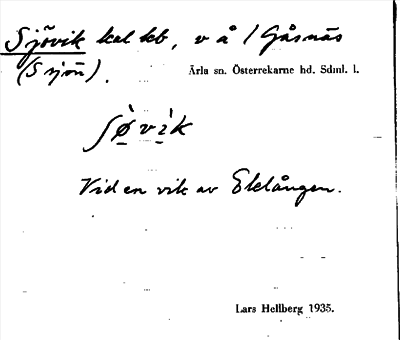 Sjövik kal kb, v å / Gåsnäs
(Sjön).
Ärla sn. Österrekarne hd. Sdml. l.
ʃø̀vìk
Vid en vik av Eklången.
Lars Hellberg 1935.